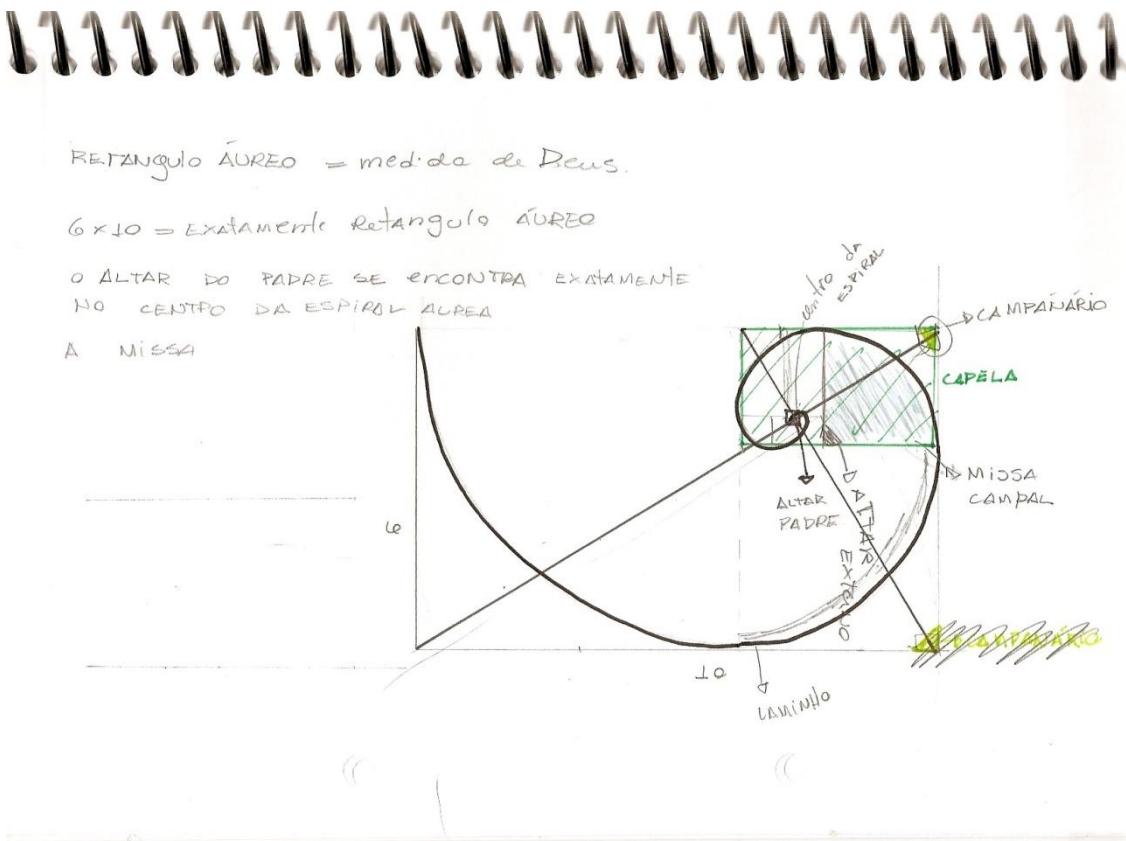 RETANgulo ÁUREO = medida de Deus.
6 x 10 = EXATAmente Retangulo ÁUREO
O ALTAR DO PADRE SE encONTRA EXATAMENTE
NO CENTRO DA ESPIRAL AUREA
A MISSA
centro da
ESPIRAL
CAMPAÑÁRIO
CAPELA
MISSA
CAMPAL
ALTAR
PADRE
ALTAR
EXTERNO
6
10
CAMINHO
CAMPANÁRIO